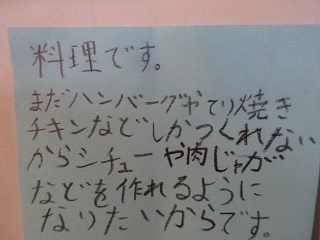 料理です。
まだハンバーグやてり焼き
チキンなどしかつくれない
からシチューや肉じゃが
などを作れるように
なりたいからです。